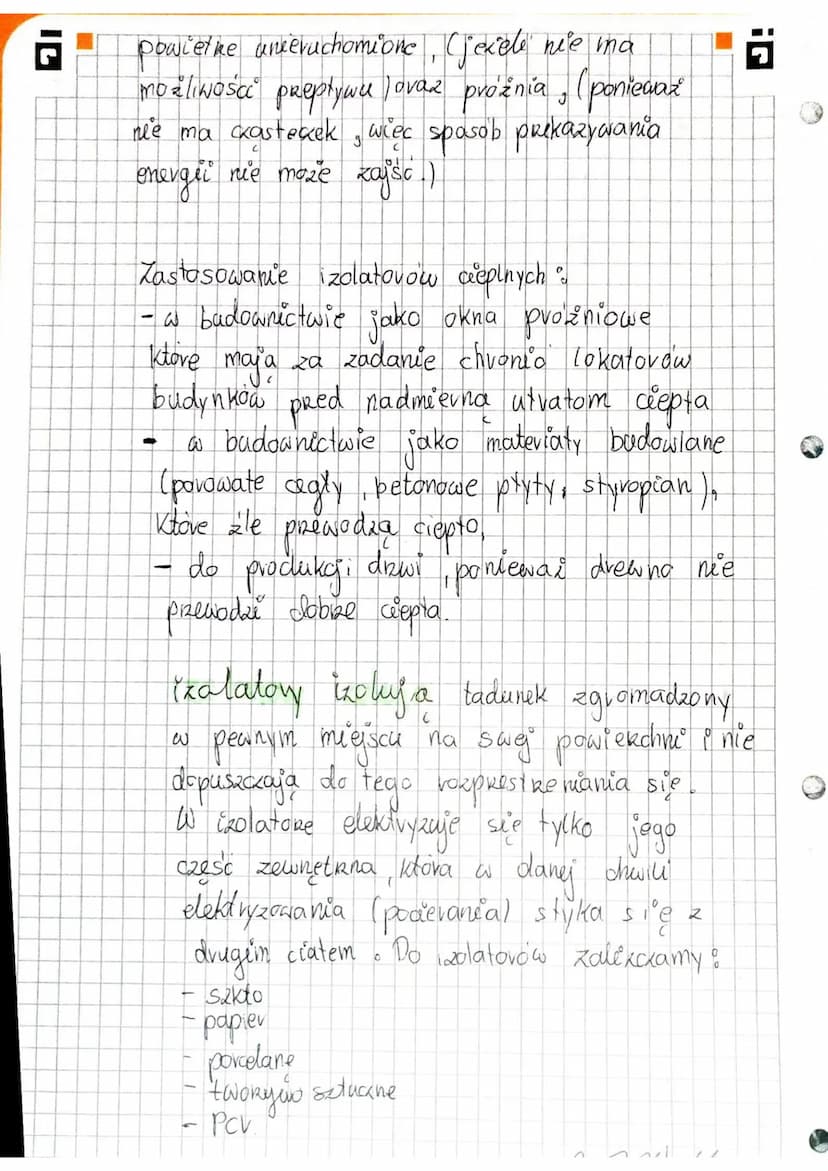 powietrze unieruchomione, (jeżeli nie ma
możliwości przepływu) oraz próżnia, (ponieważ
nie ma cząsteczek, więc sposób przekazywania
energii nie może zajść.)
Zastosowanie izolatorów cieplnych:
- w budownictwie jako okna próżniowe
które mają za zadanie chronić lokatorów
budynków przed nadmierną utratom ciepła
- w budownictwie jako materiały budowlane
(porowate cegły, betonowe płyty, styropian),
które źle przewodzą ciepło,
- do produkcji drzwi, ponieważ drewno nie
przewodzi dobrze ciepła.
izolatory izolują ładunek zgromadzony
w pewnym miejscu na swej powierzchni i nie
dopuszczają do tego rozprzestrzeniania się.
W izolatorze elektryzuje się tylko jego
część zewnętrzna, która w danej chwili
elektryzowania (pocierania) styka się z
drugim ciałem. Do izolatorów zaliczamy:
- szkło
- papier
- porcelanę
- tworzywo sztuczne
- PCV